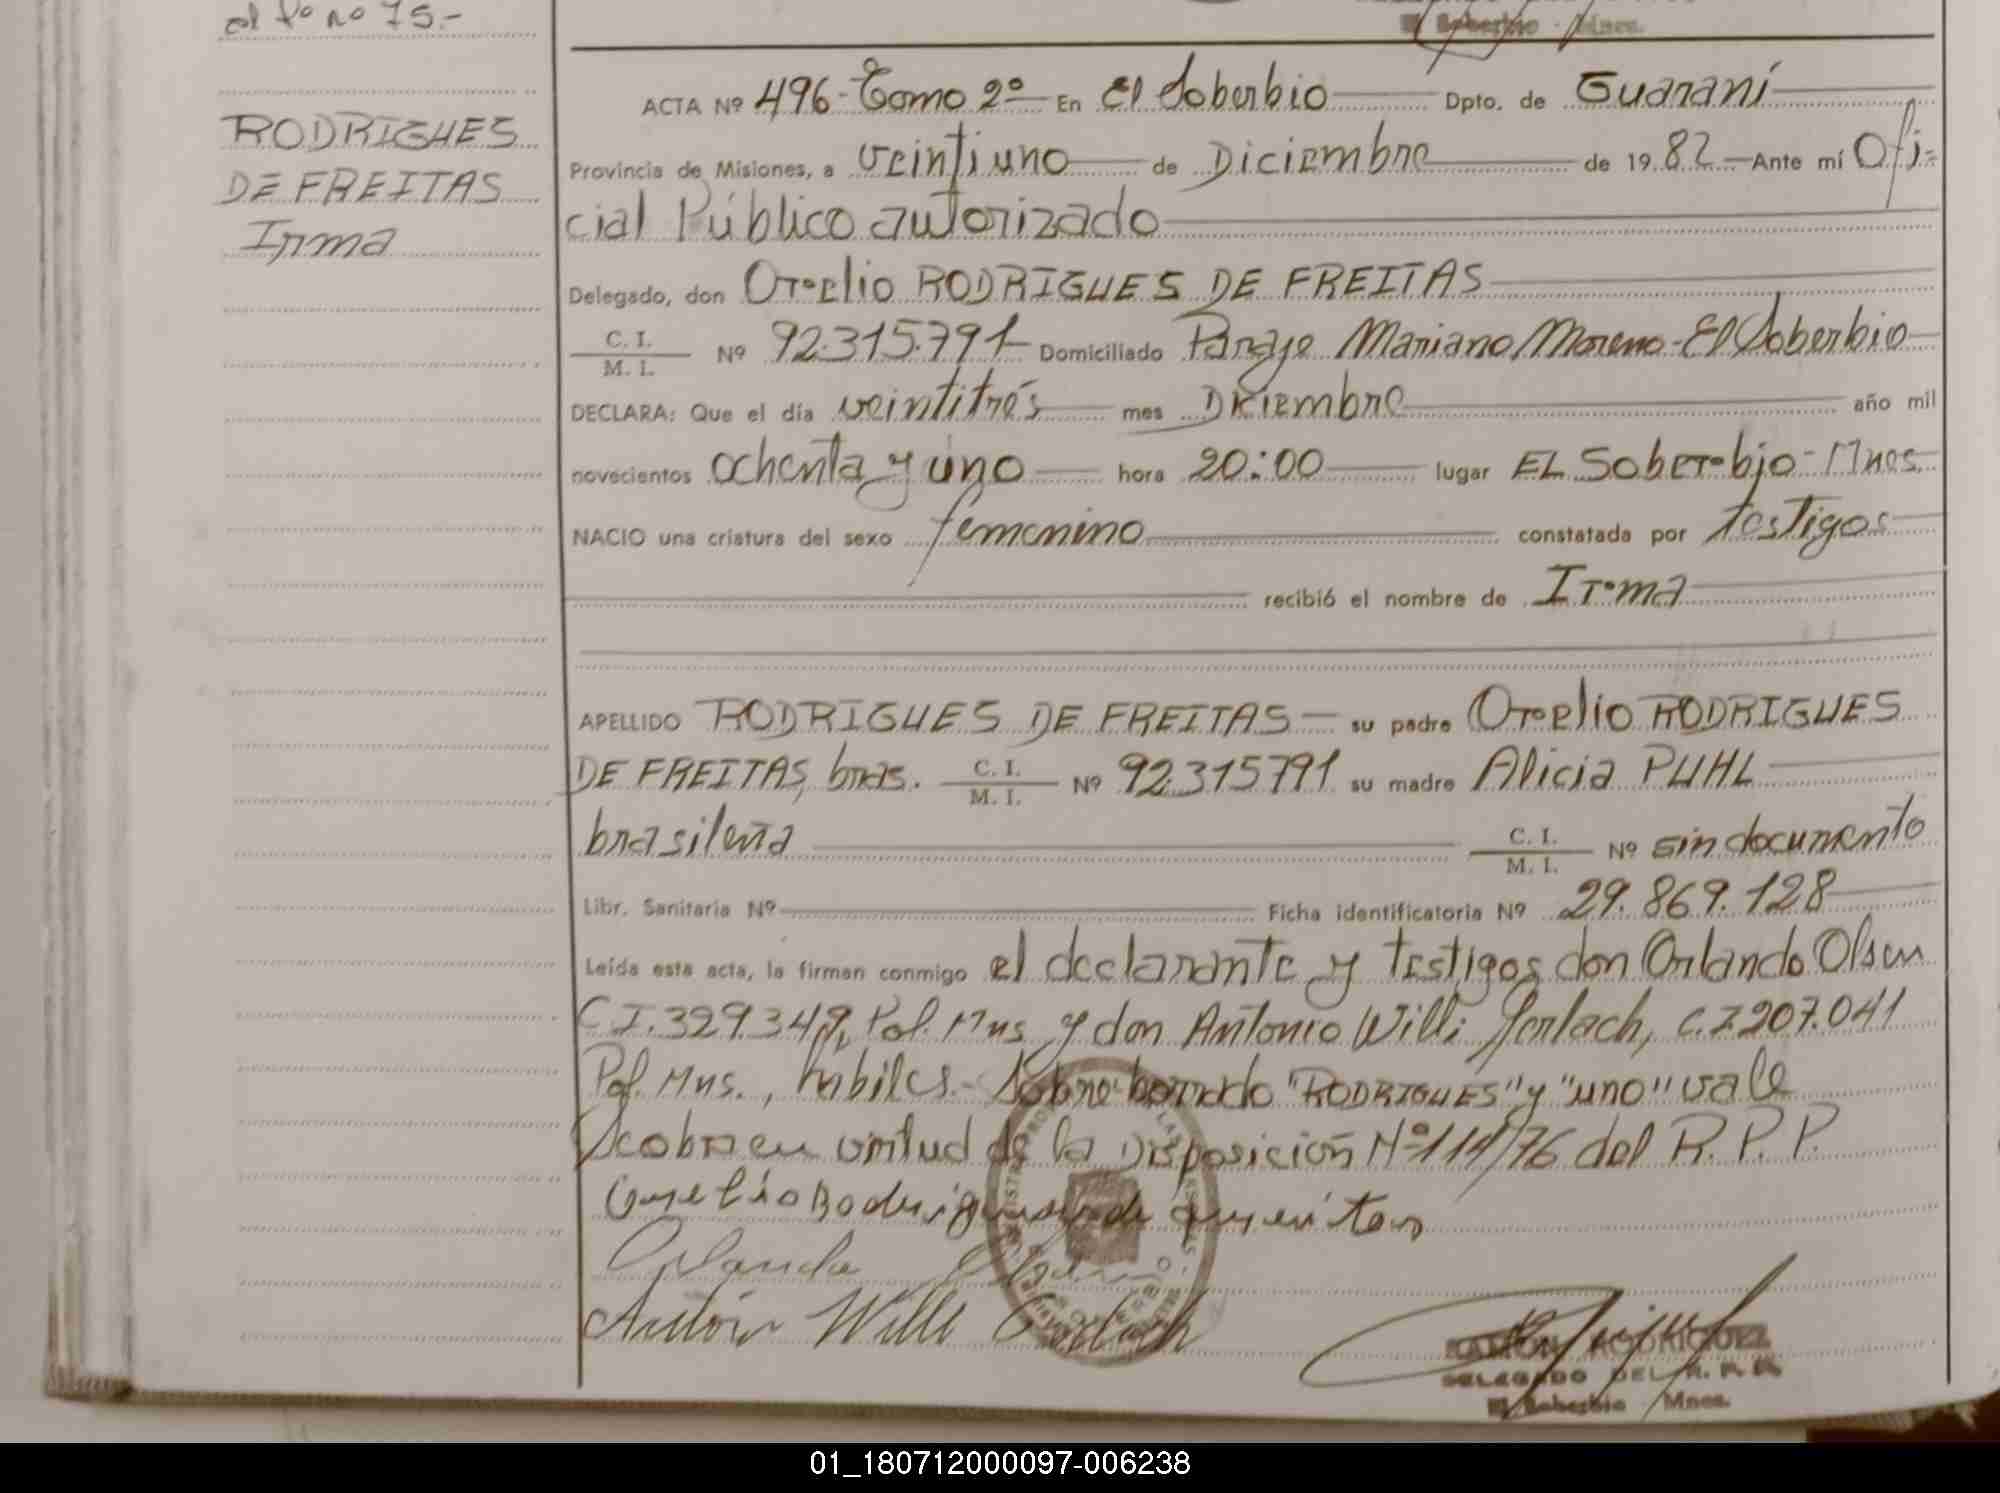 al fº nº 75.-
El Soberbio - Mnes.
RODRIGUES
DE FREITAS
Irma
ACTA Nº 496 - Tomo 2º - En El Soberbio Dpto. de Guaraní
Provincia de Misiones, a veintiuno de Diciembre de 1982 - Ante mí Ofi-
cial Público autorizado
Delegado, don Orelio RODRIGUES DE FREITAS
C. I. / M. I. Nº 92.315.791 Domiciliado Paraje Mariano Moreno - El Soberbio
DECLARA: Que el día veintitrés mes Diciembre año mil
novecientos ochenta y uno hora 20:00 lugar EL Soberbio - Mnes.
NACIO una criatura del sexo femenino constatada por testigos
recibió el nombre de Irma
APELLIDO RODRIGUES DE FREITAS su padre Orelio RODRIGUES
DE FREITAS, bras. C. I. / M. I. Nº 92.315791 su madre Alicia PUHL
brasileña C. I. / M. I. Nº sin documento
Libr. Sanitaria Nº Ficha identificatoria Nº 29.869.128
Leída esta acta, la firman conmigo el declarante y testigos don Orlando Olsen
C.I. 329.349, Pol. Mns y don Antonio Willi Gerlach, C.I 207.041
Pol. Mns., hábiles.- Sobre borrado "RODRIGUES" y "uno" vale
Se obra en virtud de la Disposición Nº 114/76 del R.P.P.
Orlando Olsen
Antonio Willi Gerlach
RAMON RODRIGUEZ
DELEGADO DEL R. P. P.
El Soberbio - Mnes.
01_180712000097-006238